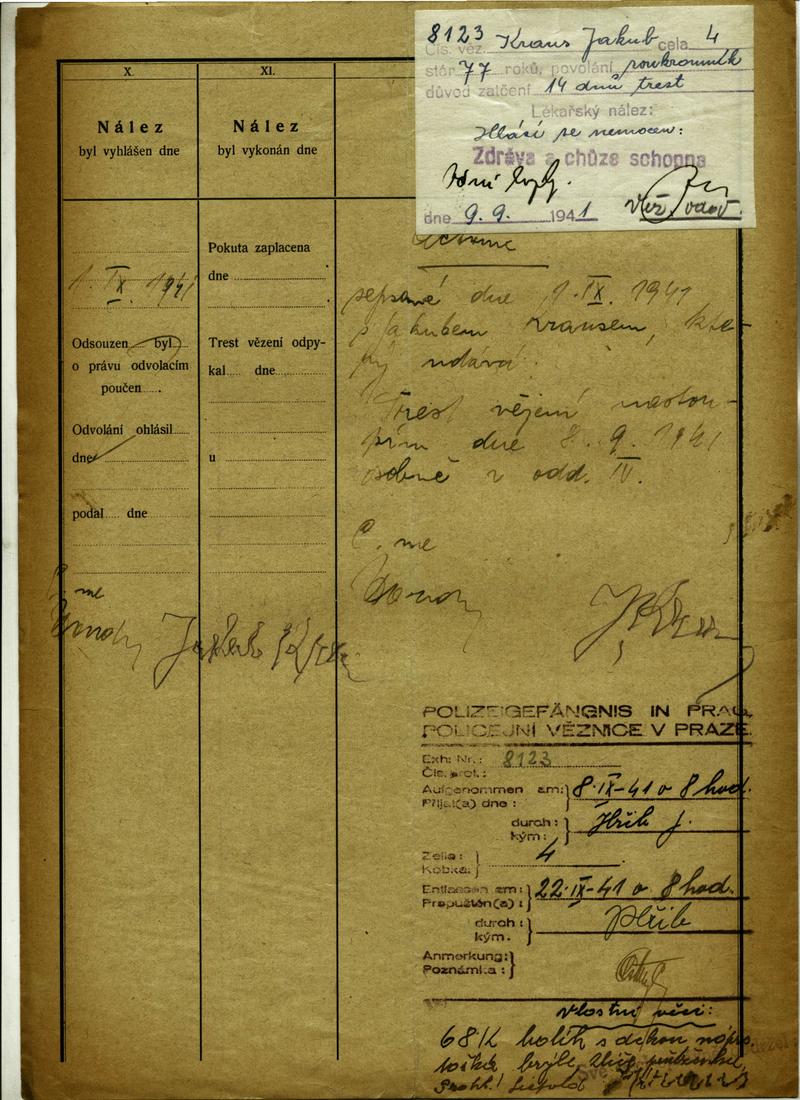 8123 Kraus Jakub cela 4
Čís. věz.
stár 77 roků, povolání soukromník
důvod zatčení 14 dnů trest
Lékařský nález:
Hlásí se nemocen:
Zdráva a chůze schopna
dne 9. 9. 1941
X.
XI.
Nález
byl vyhlášen dne
Nález
byl vykonán dne
1. IX. 1941
Odsouzen byl
o právu odvolacím
poučen
Odvolání ohlásil
dne
podal dne
Pokuta zaplacena
dne
Trest vězení odpy-
kal dne
u
sepsané dne 1. IX. 1941
s Jakubem Krausem, kte-
rý udává:
Trest vězení nastou-
pím dne 8. 9. 1941
osobně v odd. IV.
Č. me
Č. me
Jakub Kraus
JKraus
POLIZEIGEFÄNGNIS IN PRAG
POLICEJNÍ VĚZNICE V PRAZE.
Exh: Nr.: 8123
Čís. prot.:
Aufgenommen am: 8·IX-41 o 8 hod.
Přijat(a) dne:
durch: Hřib J.
kým:
Zelle: 4
Kobka:
Entlassen am: 22·IX-41 o 8 hod.
Propuštěn(a):
durch: Hřib
kým.
Anmerkung:
Poznámka:
Vlastní věci:
68K
brýle,